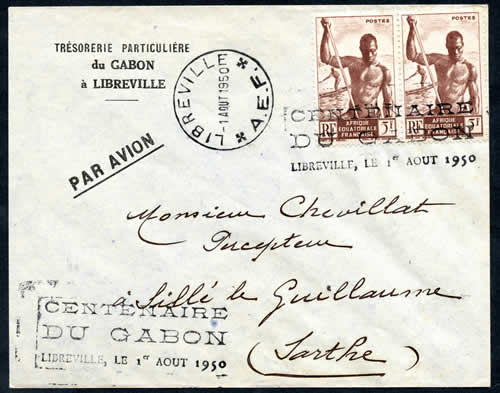 TRÉSORERIE PARTICULIÈRE
du GABON
à LIBREVILLE
LIBREVILLE
-1 AOUT 1950
A.E.F.
PAR AVION
POSTES
RF
AFRIQUE
EQUATORIALE
FRANÇAISE
5F
POSTES
RF
AFRIQUE
EQUATORIALE
FRANÇAISE
5F
CENTENAIRE
DU GABON
LIBREVILLE, LE 1er AOUT 1950
Monsieur Chevillat
Percepteur
à Sillé le Guillaume
(Sarthe)
CENTENAIRE
DU GABON
LIBREVILLE, LE 1er AOUT 1950